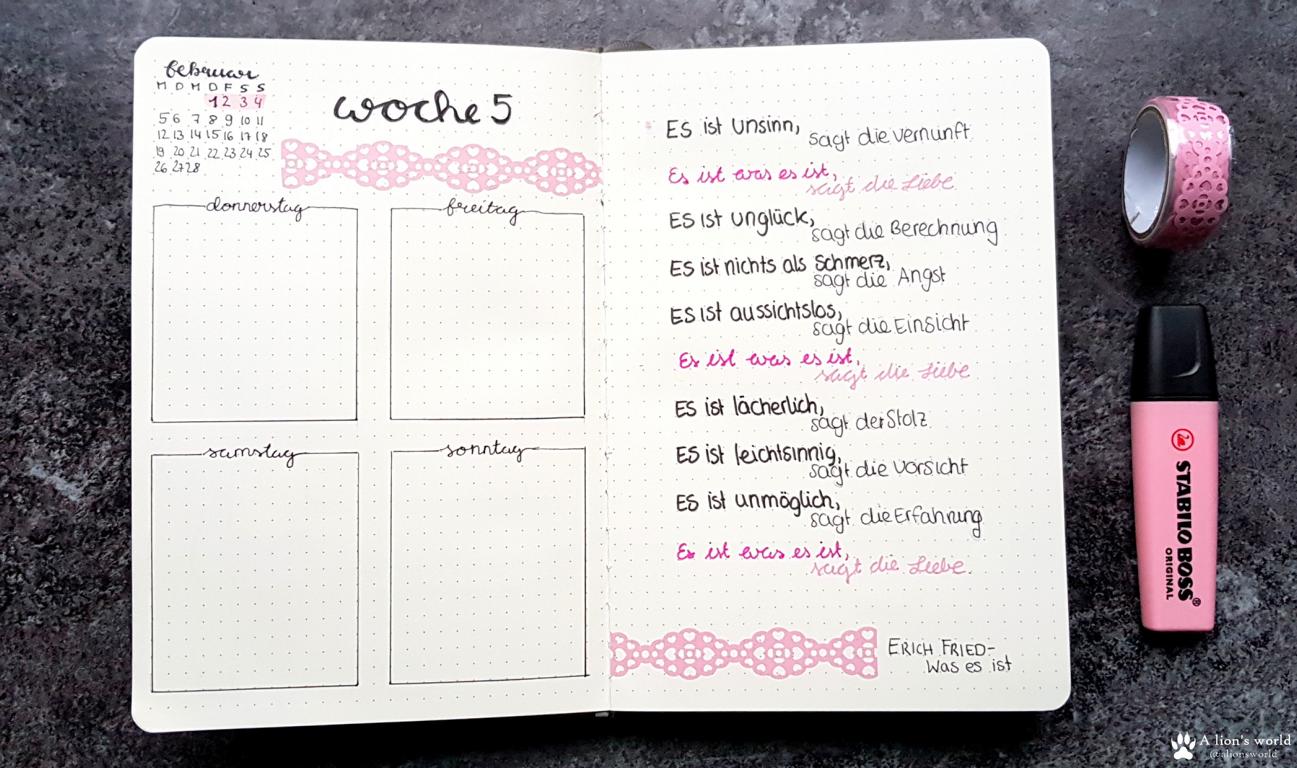 februar
M D M D F S S
1 2 3 4
5 6 7 8 9 10 11
12 13 14 15 16 17 18
19 20 21 22 23 24 25
26 27 28
woche 5
donnerstag
freitag
samstag
sonntag
ES ist unsinn,
sagt die vernunft
Es ist was es ist,
sagt die Liebe
ES ist unglück,
sagt die Berechnung
ES ist nichts als Schmerz,
sagt die Angst
ES ist aussichtslos,
sagt die Einsicht
Es ist was es ist,
sagt die Liebe
ES ist lächerlich,
sagt der Stolz
ES ist leichtsinnig,
sagt die Vorsicht
ES ist unmöglich,
sagt die Erfahrung
Es ist was es ist,
sagt die Liebe.
ERICH FRIED-
Was es ist
STABILO BOSS®
ORIGINAL
A lion's world
@alionsworld